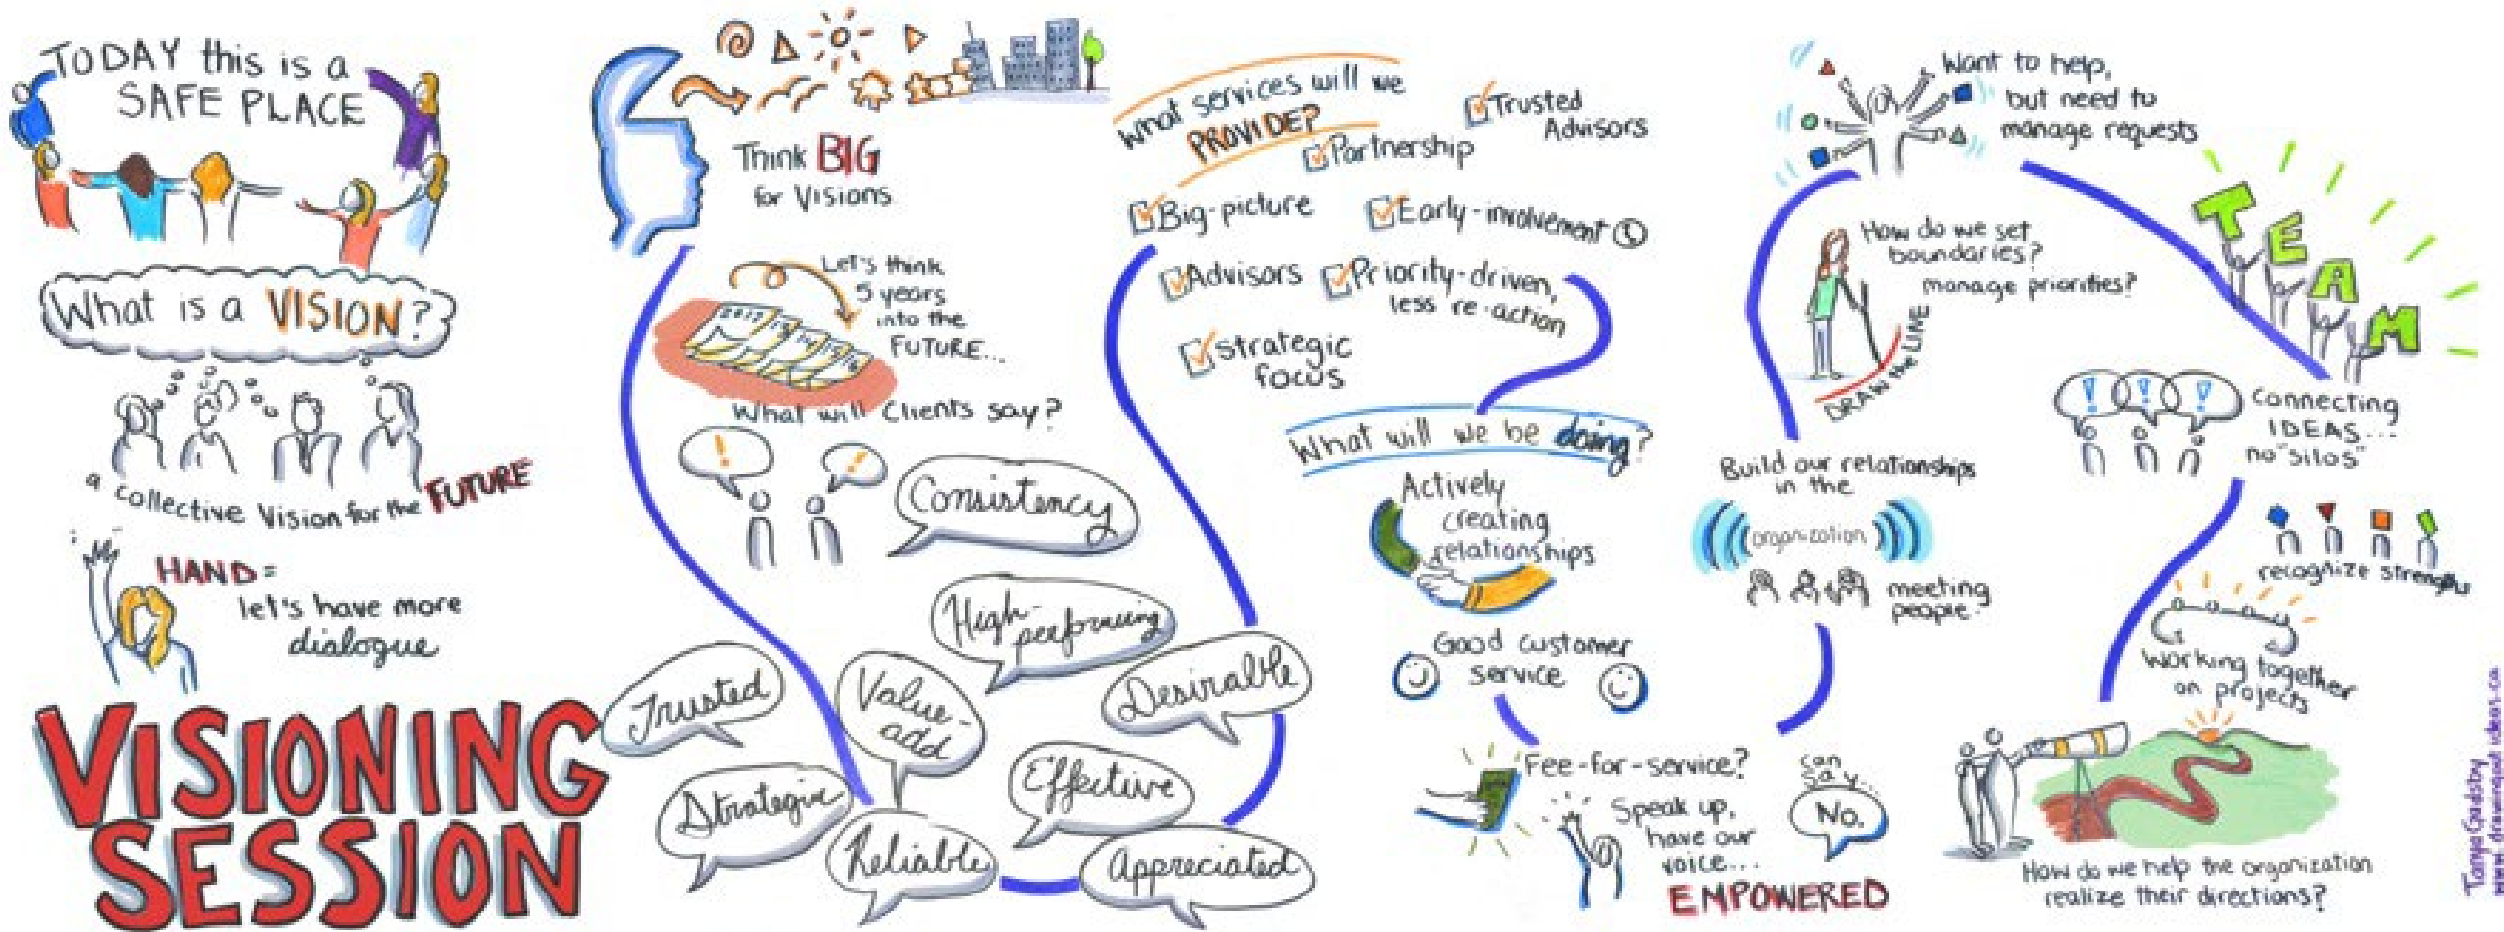 TODAY this is a
SAFE PLACE
What is a VISION?
a collective Vision for the FUTURE
HAND =
let's have more
dialogue
VISIONING
SESSION
Think BIG
for Visions
Let's think
5 years
into the
FUTURE...
What will Clients say?
Consistency
High-
performing
Trusted
Value-
add
Desirable
Strategic
Effective
Reliable
Appreciated
What services will we
PROVIDE?
Trusted
Advisors
Partnership
Big-picture
Early-involvement
Advisors
Priority-driven,
less re-action
strategic
focus
What will we be doing?
Actively
creating
relationships
Good customer
service
Fee-for-service?
Speak up,
have our
voice...
EMPOWERED
can
say...
No.
Want to help,
but need to
manage requests
How do we set
boundaries?
manage priorities?
DRAW the LINE
Build our relationships
in the
organization
meeting
people
TEAM
connecting
IDEAS...
no "silos"
recognize strengths
working together
on projects
How do we help the organization
realize their directions?